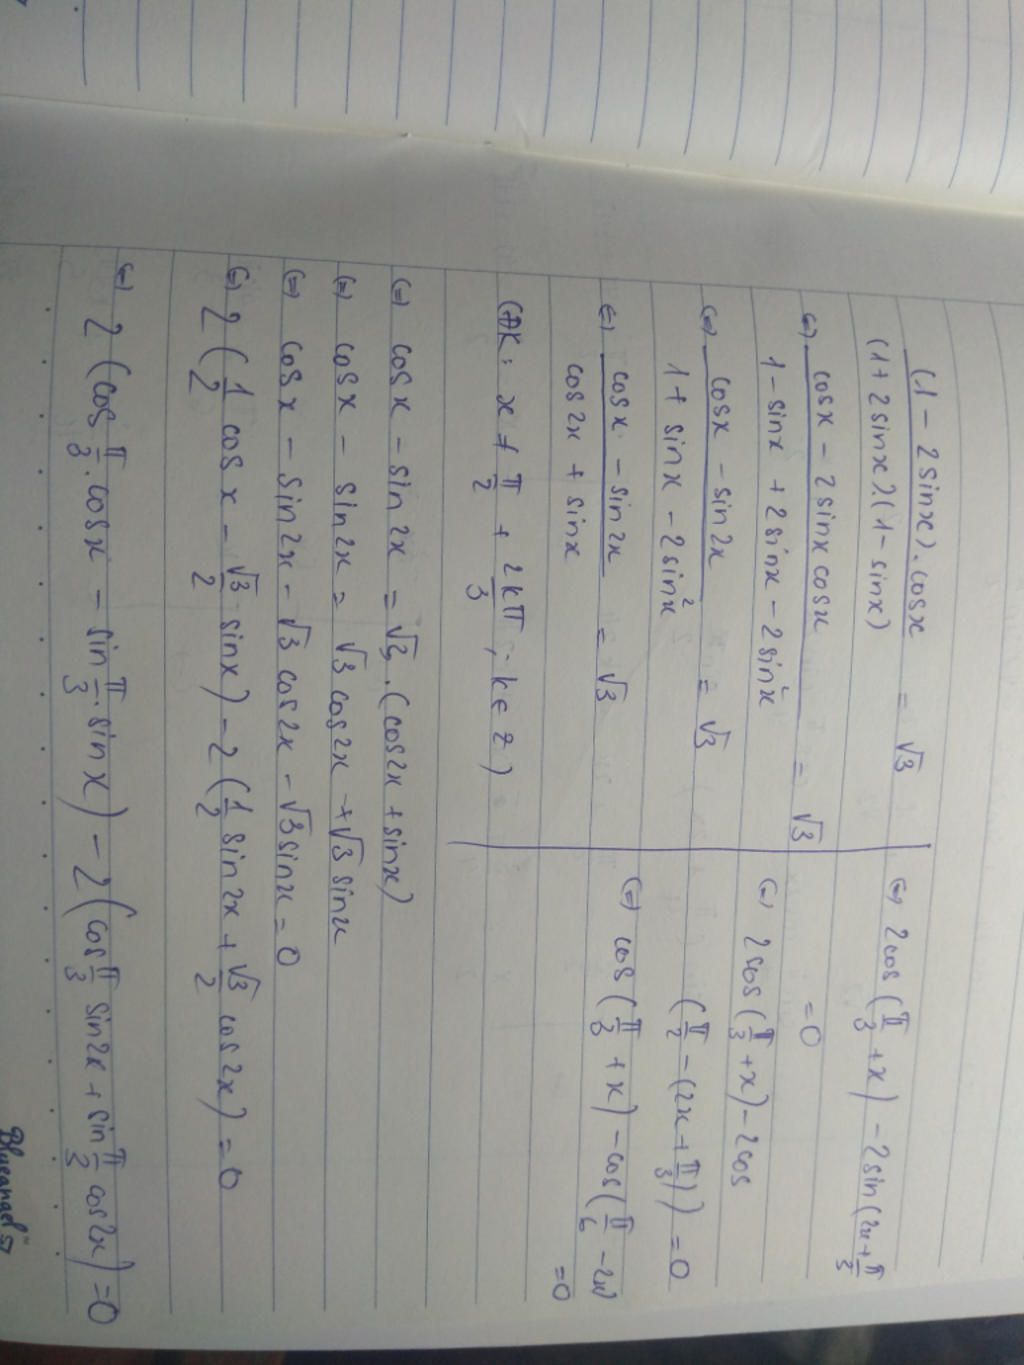 (1 - 2sinx).cosx / (1 + 2sinx).(1 - sinx) = √3
(=) cosx - 2sinxcosx / 1 - sinx + 2sinx - 2sin²x = √3
(=) cosx - sin2x / 1 + sinx - 2sin²x = √3
(=) cosx - sin2x / cos2x + sinx = √3
(ĐK: x ≠ π/2 + 2kπ/3, k ∈ Z)
(=) cosx - sin2x = √3.(cos2x + sinx)
(=) cosx - sin2x = √3cos2x + √3sinx
(=) cosx - sin2x - √3cos2x - √3sinx = 0
(=) 2(1/2 cosx - √3/2 sinx) - 2(1/2 sin2x + √3/2 cos2x) = 0
(=) 2(cos π/3 . cosx - sin π/3 . sinx) - 2(cos π/3 sin2x + sin π/3 cos2x) = 0
(=) 2cos(π/3 + x) - 2sin(2x + π/3
= 0
(=) 2cos(π/3 + x) - 2cos
(π/2 - (2x + π/3)) = 0
(=) cos(π/3 + x) - cos(π/6 - 2x)
= 0
Blueangel